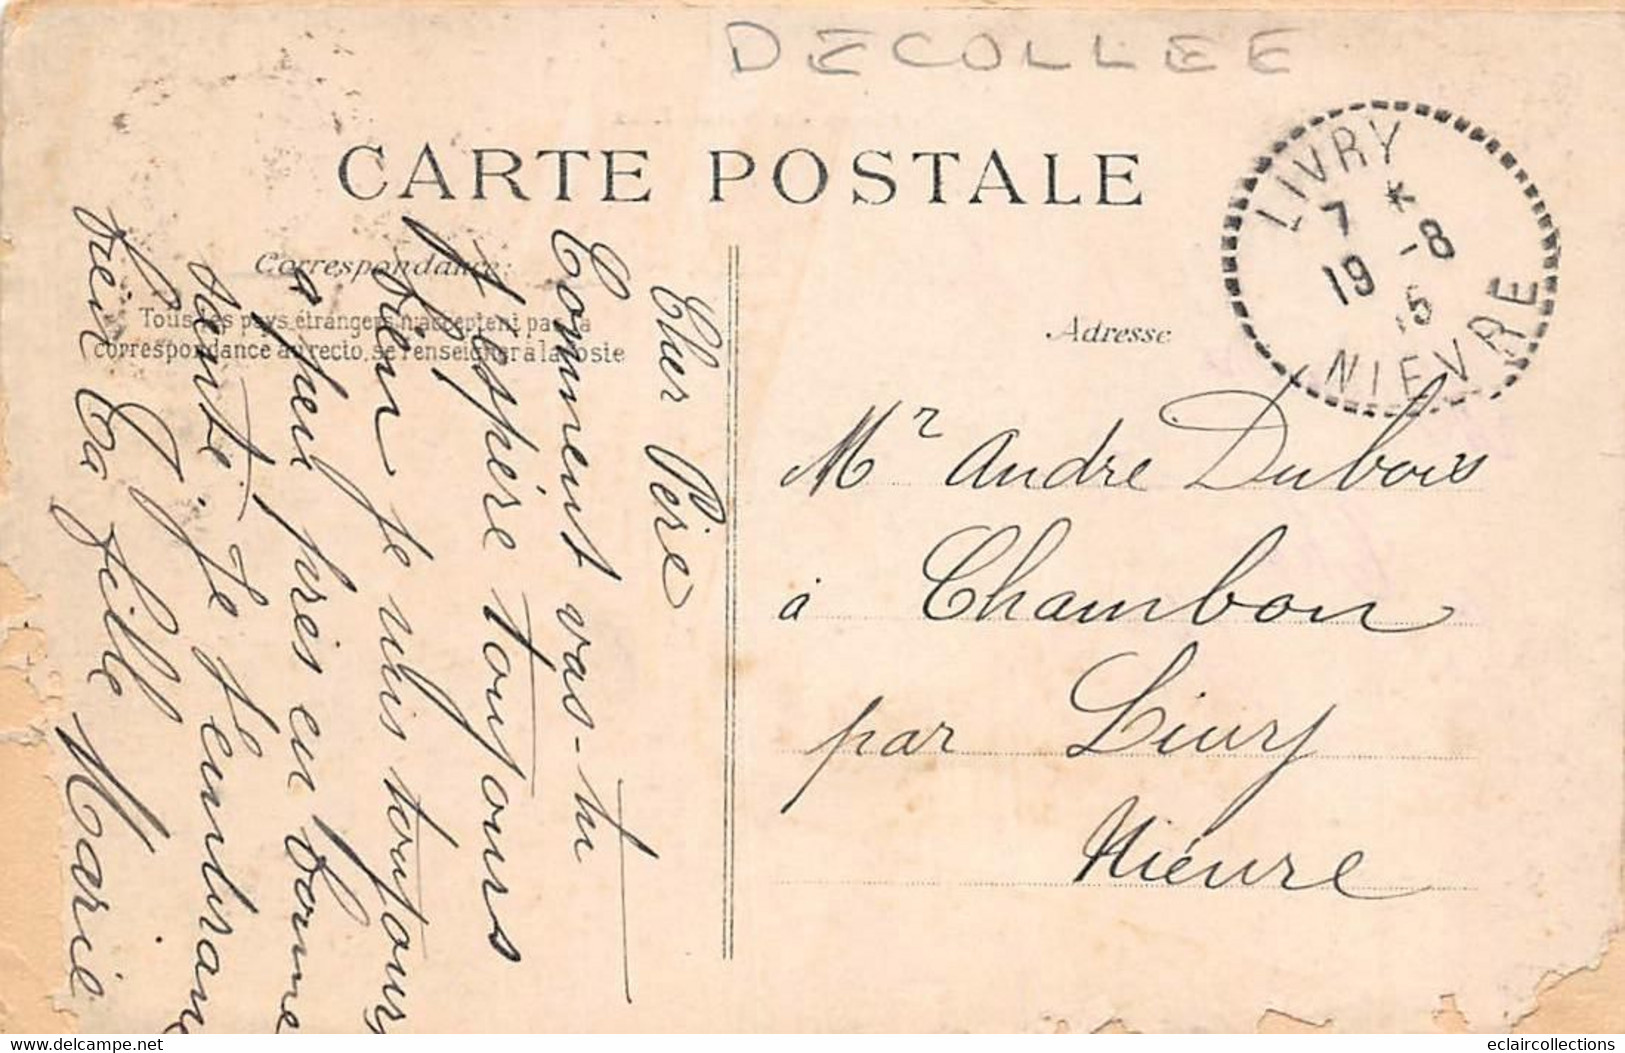 DECOLLEE
CARTE POSTALE
Correspondance:
Tous les pays étrangers n'acceptent pas la
correspondance au recto, se renseigner à la Poste
Adresse
LIVRY
7 * -8
19 15
NIEVRE
Mr André Dubois
à Chambon
par Livry
Nièvre
Cher Père
Comment vas-tu
j'espère toujours
bien je suis toujours
a peu près en bonne
santé. Je t'embrasse
bien Ta fille Marie
eclaircollections